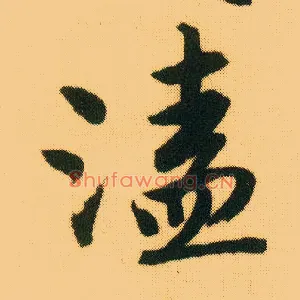 溘
Shufawang.CN